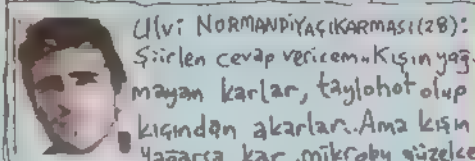 Ulvi NORMANDİYAÇIKARMASI(28):
Şiirlen cevap vericem.. Kışın yağ-
mayan karlar, taylohot olup
kıçından akarlar.. Ama kışın
yağarsa kar, mikrobu güzelce